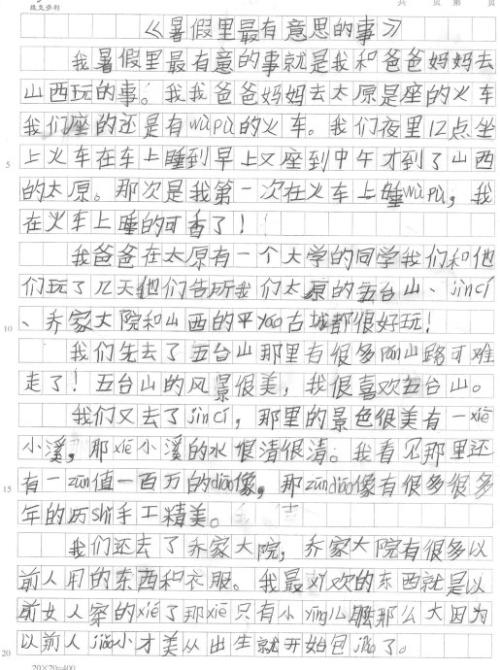 共 页 第 页
《暑假里最有意思的事》
我暑假里最有意的事就是我和爸爸妈妈去
山西玩的事。我我爸爸妈妈去太原是座的火车
我们座的还是有wūpū的火车。我们夜里12点坐
上火车在车上睡到早上又座到中午才到了山西
5
的太原。那次是我第一次在火车上睡wūpū,我
在火车上睡的可香了!
我爸爸在太原有一个大学的同学我们和他
们玩了几天他们告所我们太原的五台山、jìncí
10
、乔家大院和山西的平yáo古城都很好玩!
我们先去了五台山那里有很多 山路可难
走了!五台山的风景很美,我很喜欢五台山。
我们又去了jìncí,那里的景色很美有一xiē
小溪,那xiē小溪的水很清很清。我看见那里还
15
有一zūn值一百万的diāo像,那zūndiāo像有很多很多
年的历shǐ手工精美。
我们还去了乔家大院,乔家大院有很多以
前人用的东西和衣服。我最 欢的东西就是以
前女人穿的xié了那xié只有小 儿 那么大因为
20
以前人jiǎo小才美从出生就开始包jiǎo了。
20×20=400